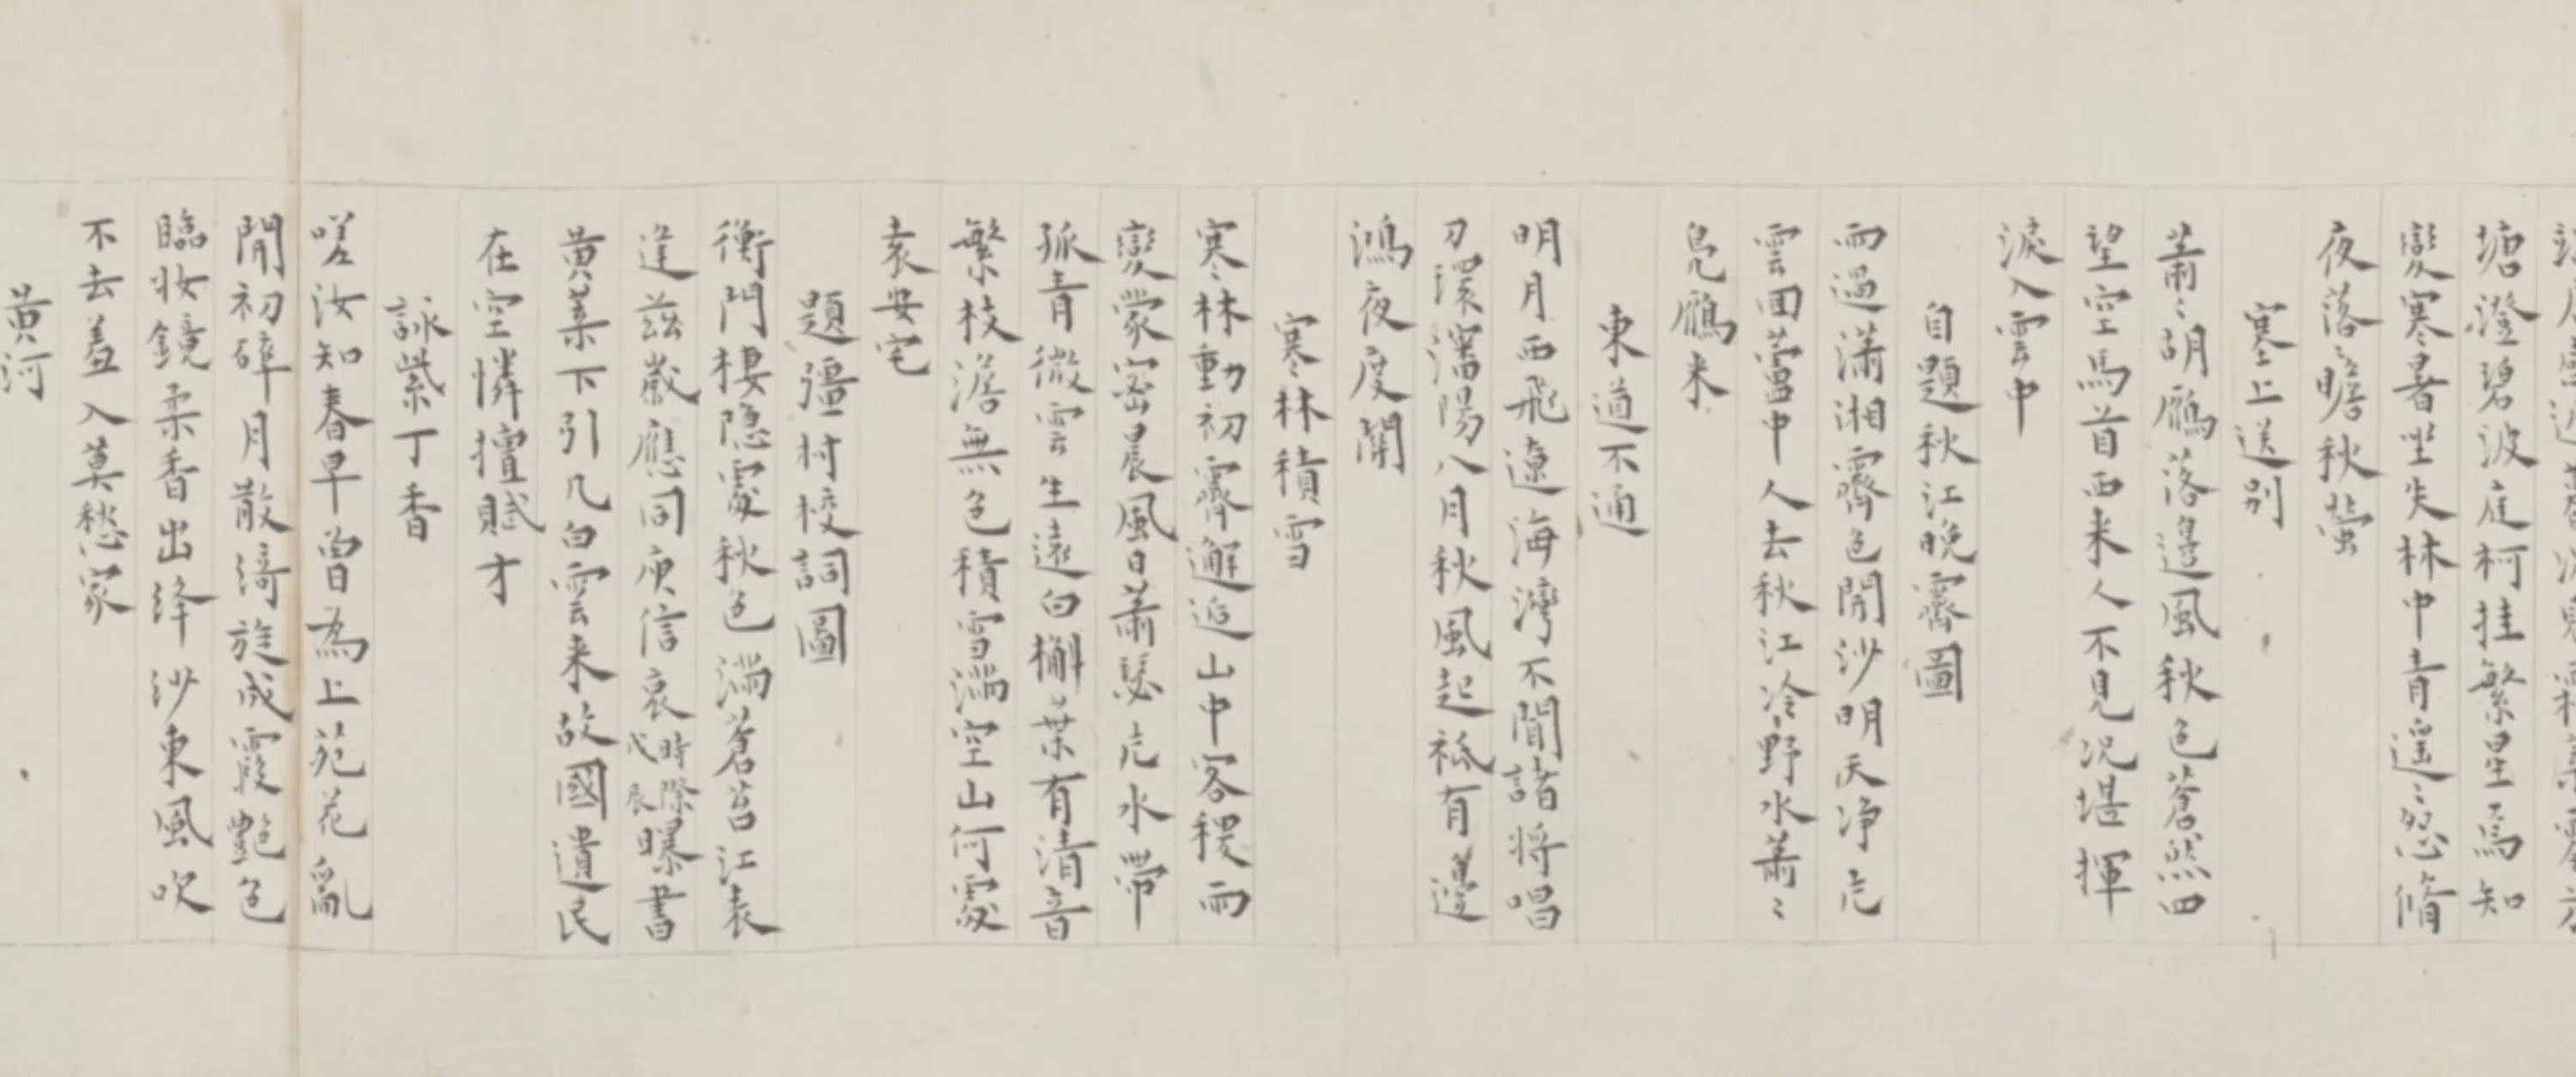 塘澄碧波庭柯挂繁星焉知
變寒暑坐失林中青遥〻怨脩
夜落〻瞻秋螢
塞上送别
蕭〻胡鴈落邊風秋色蒼然四
望空馬首西来人不見况堪揮
淚入雲中
自題秋江晚霽圖
雨過瀟湘霽色開沙明天净
雲回蓄中人去秋江冷野水蕭〻
鳧鴈来
東道不通
明月西飛遼海灣不聞諸将唱
刀環瀋陽八月秋風起袛有邊
鴻夜度關
寒林積雪
寒〻林動初霽邂逅山中客稷雨
變蒙密晨風日蕭瑟水帶
孤青微雲生遠白槲葉有清音
繁枝澹無色積雪滿空山何處
袁安宅
題彊村校詞圖
衡門棲隐處秋色滿蒼苔江表
逢兹歲應同庾信哀時際戊辰曝書
黄葉下引几白雲来故國遺民
在空憐擅賦才
詠紫丁香
嗟汝知春早曾為上苑花亂
開初碎月散綺旋成霞艶色
臨妝鏡柔香出绛沙東風吹
不去羞入莫愁家
黄河